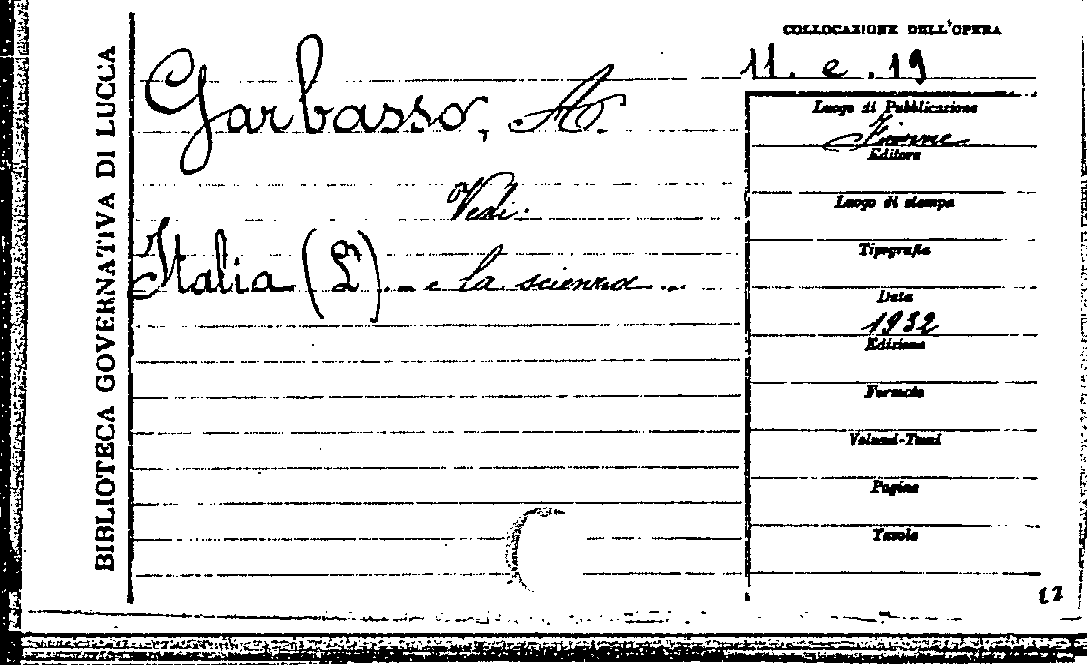 BIBLIOTECA GOVERNATIVA DI LUCCA
COLLOCAZIONE DELL'OPERA
11. e. 19
Garbasso, A.
Vedi:
Italia (L') - e la scienza -
Luogo di Pubblicazione
Firenze
Editore
Luogo di stampa
Tipografia
Data
1932
Edizione
Formato
Volumi-Tomi
Pagine
Tavole